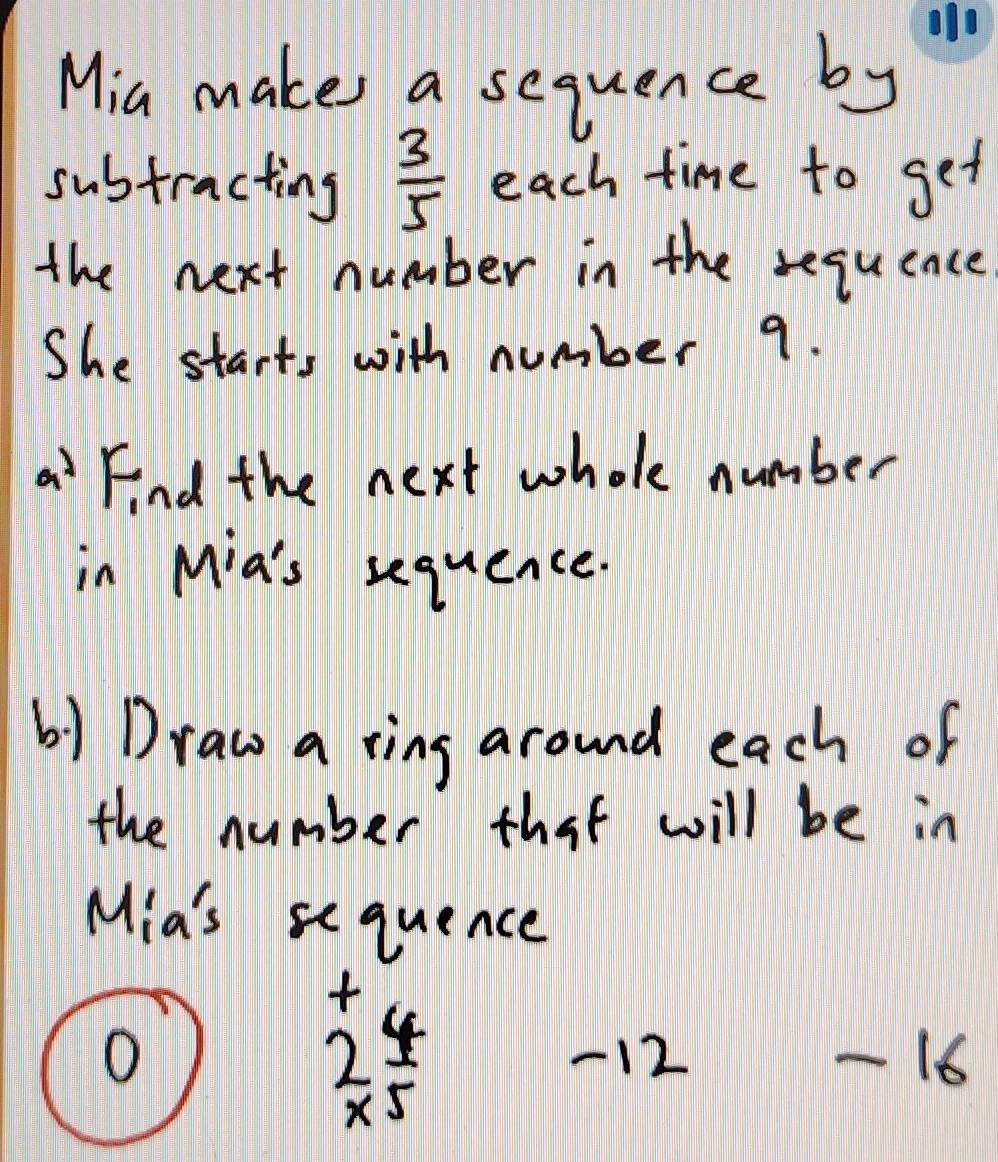 Mia makes a sequence by
subtracting 3/5 each time to get
the next number in the sequence.
She starts with number 9.
a) Find the next whole number
in Mia's sequence.
b.) Draw a ring around each of
the number that will be in
Mia's sequence
+
0 2 4/5 -12 - 16
x